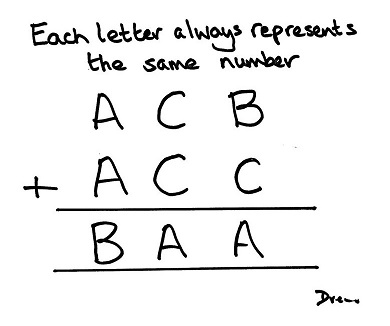 Each letter always represents
the same number
A C B
+ A C C
B A A
Drew